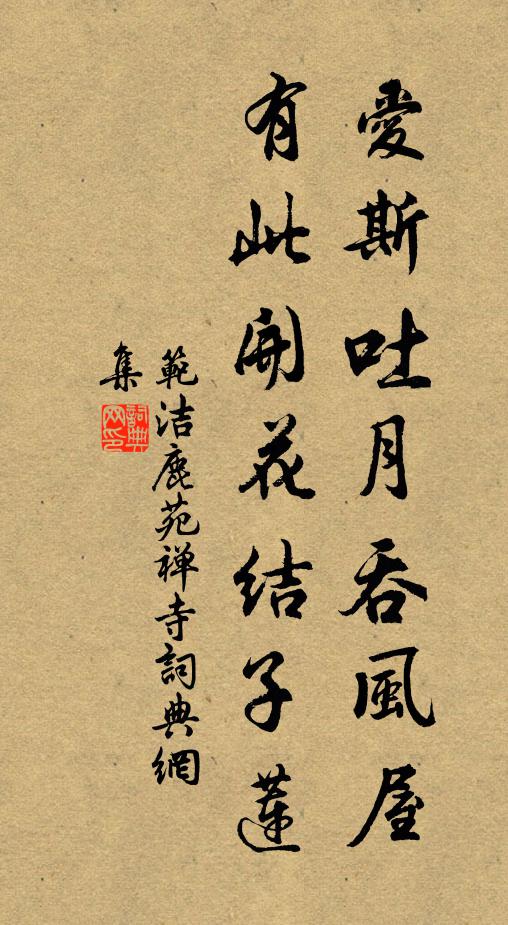 愛斯吐月吞風屋
有此開花結子蓮
範洁鹿苑禅寺詞典網
集
詞典網印